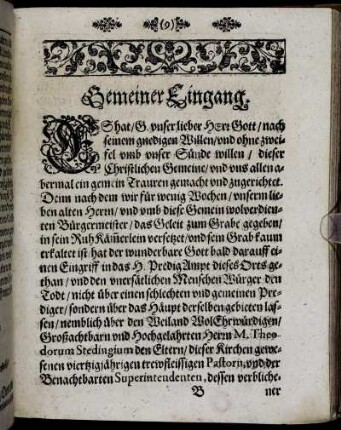 (9)
Gemeiner Eingang.
ES hat / G. vnser lieber HErr Gott / nach
seinem gnedigen Willen / vnd ohne zwei-
fel vmb vnser Sünde willen / dieser
Christlichen Gemeine / vnd vns allen a-
bermal ein gemein Trauren gemacht vnd zugerichtet.
Denn nach dem wir für wenig Wochen / vnsern lie-
ben alten Herrn / vnd vmb diese Gemein wolverdien-
ten Bürgermeister / das Geleit zum Grabe gegeben /
in sein Ruh Kämmerlein versetzet / vnd sein Grab kaum
erkaltet ist hat der wunderbare Gott bald darauff ei-
nen Eingriff in das H. Predig Ampt dieses Orts ge-
than / vnd den vnersätlichen Menschen Würger den
Todt / nicht über einen schlechten vnd gemeinen Pre-
diger / sondern über das Häupt derselben gebieten las-
sen / nemblich über den Weiland WolEhrwürdigen /
Großachtbarn vnd Hochgelahrten Herrn M. Theo-
dorum Stedingium den Eltern / dieser Kirchen gewe-
senen viertzigjährigen trewfleissigen Pastorn, vnd der
Benachtbarten Superintendenten, dessen verbliche-
B ner